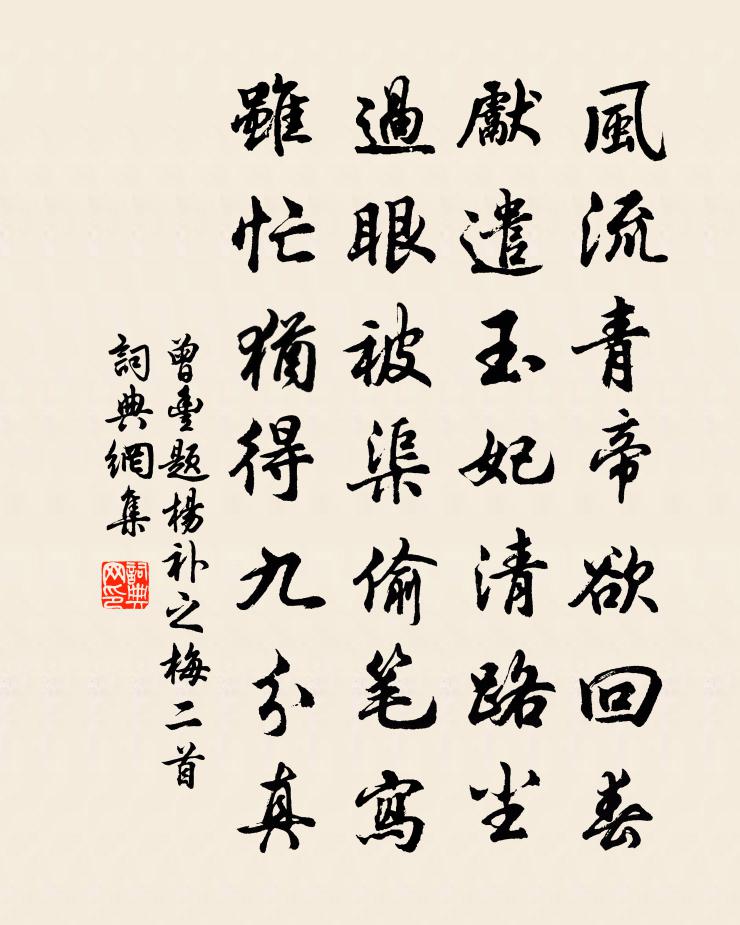 風流青帝欲回春
獻遣玉妃清路尘
過眼被渠偷笔寫
雖忙猶得九分真
曾豐題楊补之梅二首
詞典網集
詞典网印